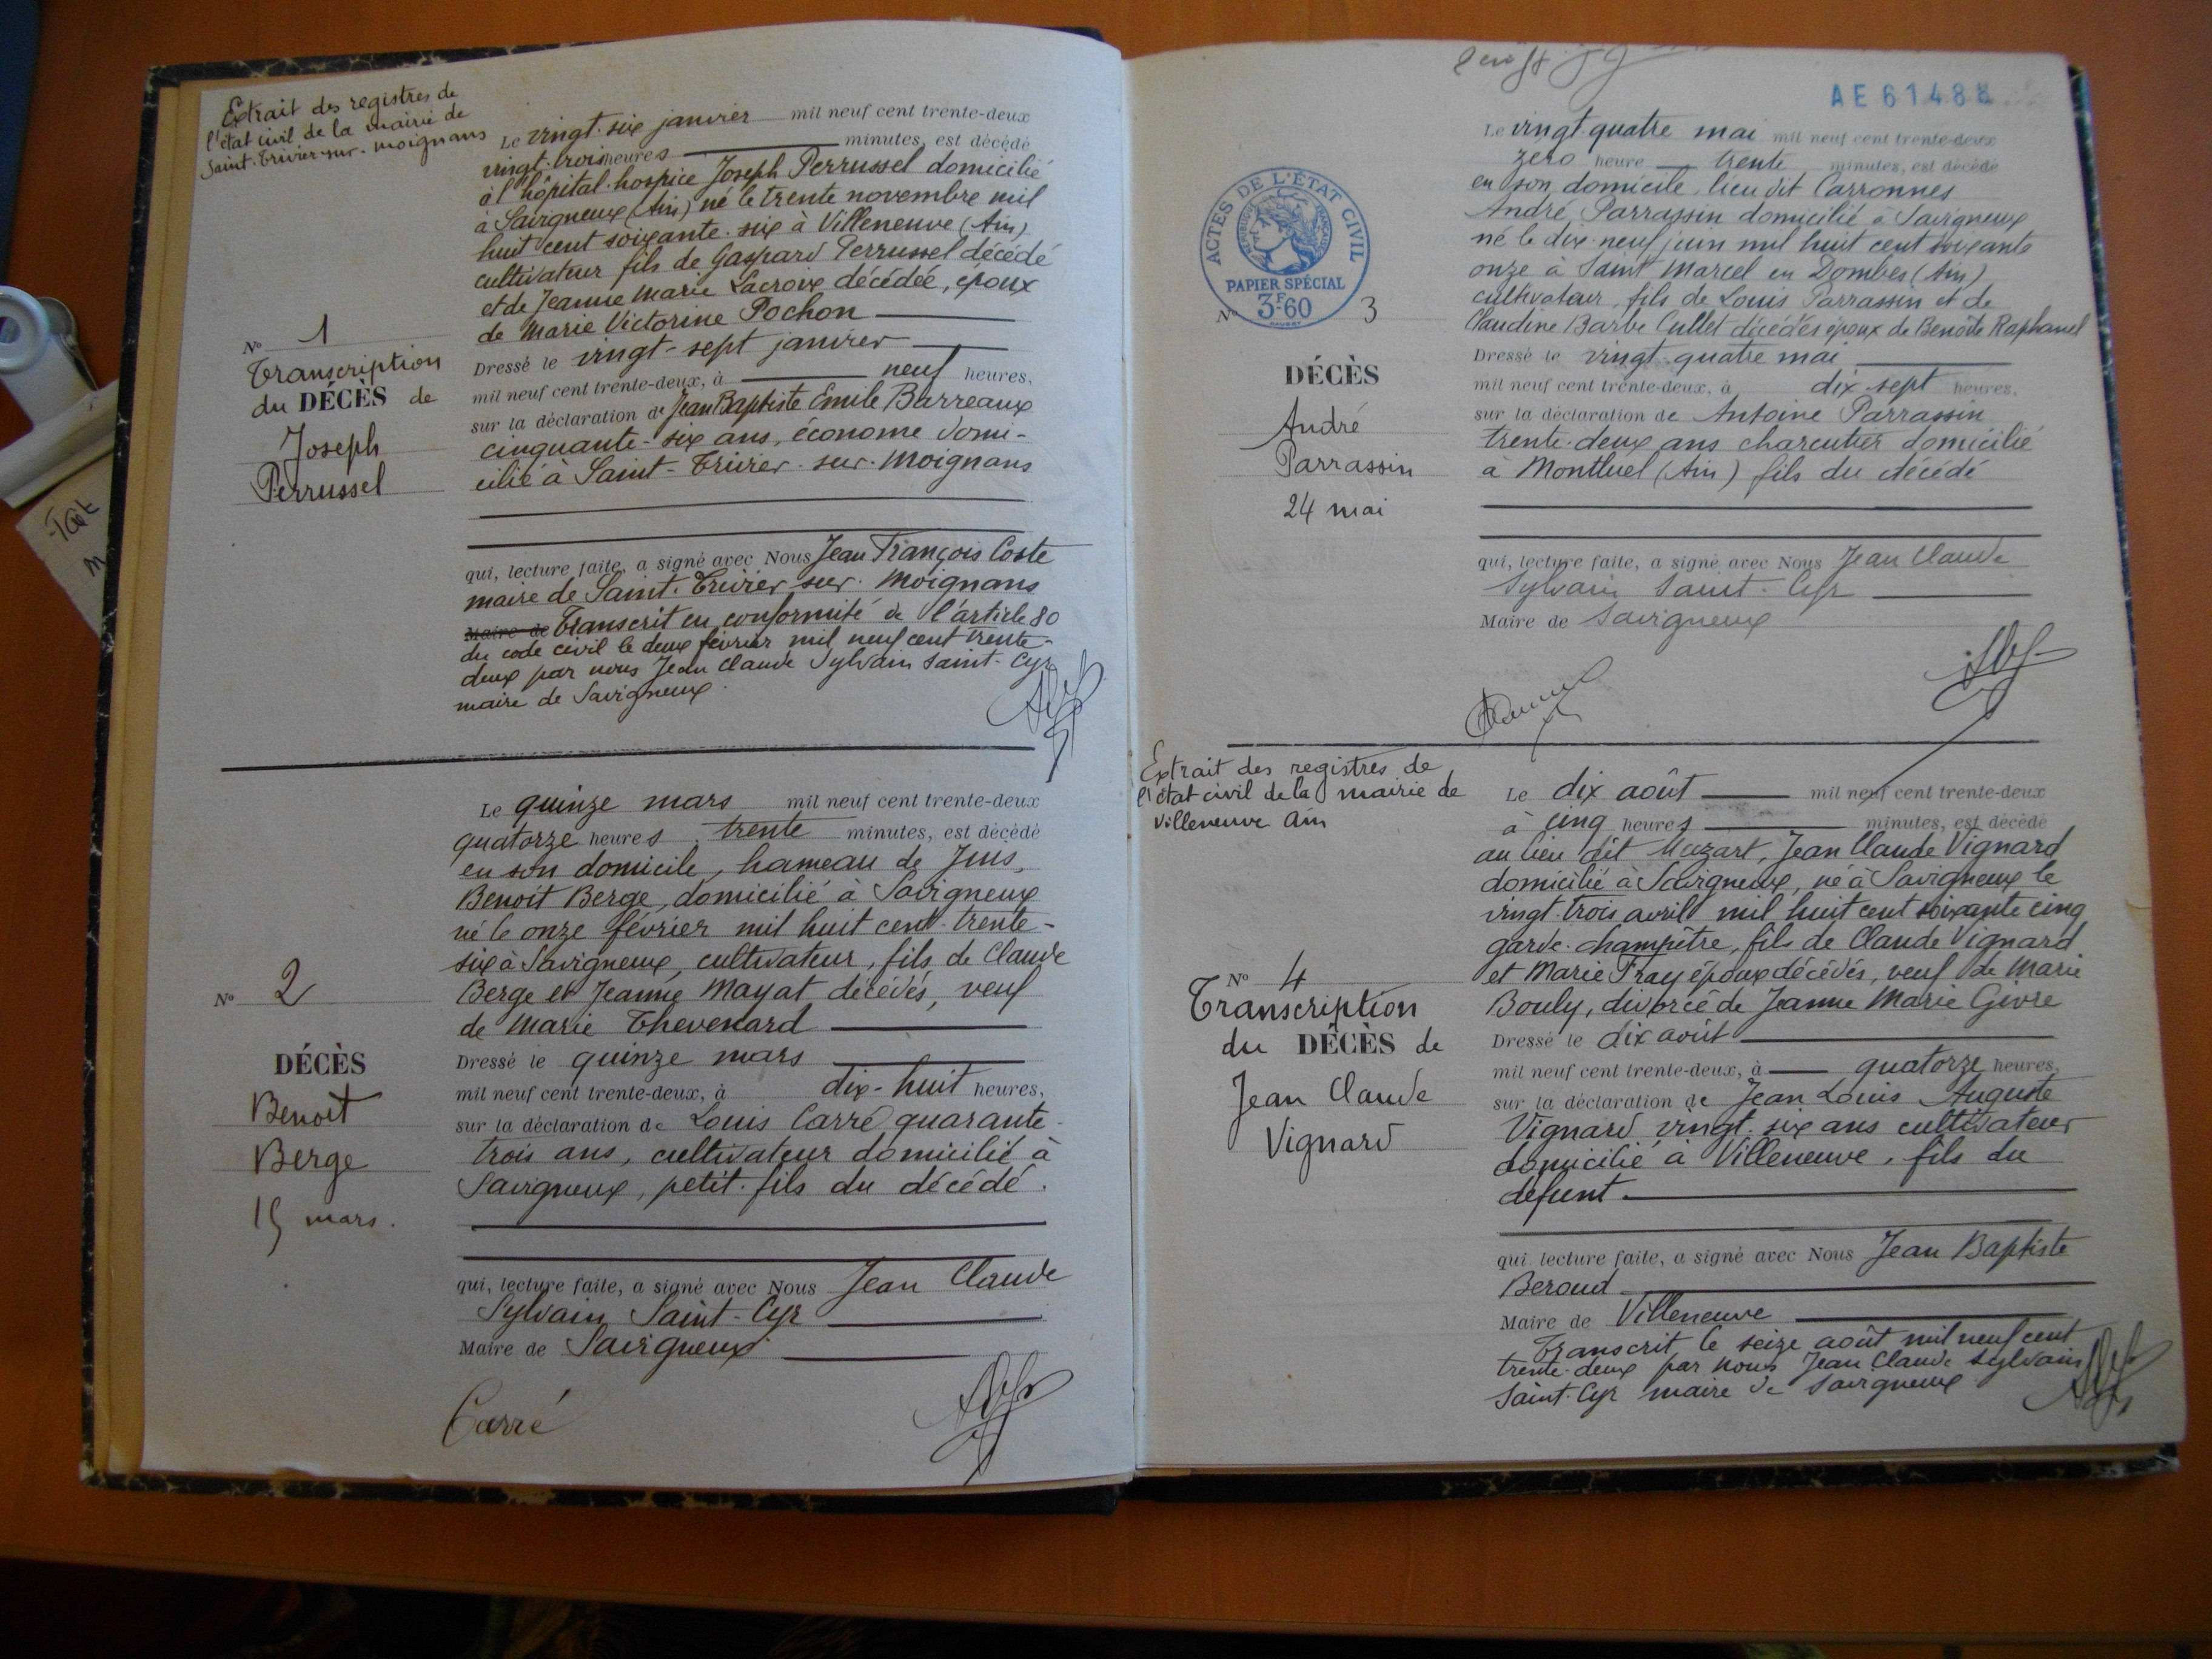 Extrait des registres de
l'état civil de la mairie de
Saint-Trivier-sur-Moignans
N° 1
Transcription
du DÉCÈS de
Joseph
Perrussel
Le vingt-six janvier mil neuf cent trente-deux
vingt-trois heures minutes, est décédé
à l'hôpital-hospice Joseph Perrussel domicilié
à Savigneux (Ain) né le trente novembre mil
huit cent soixante-six à Villeneuve (Ain)
cultivateur fils de Gaspard Perrussel décédé
et de Jeanne Marie Lacroix décédée, époux
de Marie Victorine Pochon
Dressé le vingt-sept janvier
mil neuf cent trente-deux, à neuf heures,
sur la déclaration de Jean Baptiste Emile Barreaux
cinquante-six ans, économe domi-
cilié à Saint-Trivier-sur-Moignans
qui, lecture faite, a signé avec Nous Jean François Coste
maire de Saint-Trivier sur Moignans
Maire de Transcrit en conformité de l'article 80
du code civil le deux février mil neuf cent trente-
deux par nous Jean Claude Sylvain Saint-Cyr
maire de Savigneux.
N° 2
DÉCÈS
Benoit
Berge
15 mars.
Le quinze mars mil neuf cent trente-deux
quatorze heures trente minutes, est décédé
en son domicile, hameau de Juis,
Benoit Berge, domicilié à Savigneux
né le onze février mil huit cent trente-
six à Savigneux, cultivateur, fils de Claude
Berge et Jeanne Mayat décédés, veuf
de Marie Thevenard
Dressé le quinze mars
mil neuf cent trente-deux, à dix-huit heures,
sur la déclaration de Louis Carré quarante-
trois ans, cultivateur domicilié à
Savigneux, petit-fils du décédé.
qui, lecture faite, a signé avec Nous Jean Claude
Sylvain Saint-Cyr
Maire de Savigneux
Carré
AE 61488
ACTES DE L'ÉTAT CIVIL
PAPIER SPÉCIAL
3F.60
N° 3
DÉCÈS
André
Parrassin
24 mai
Le vingt-quatre mai mil neuf cent trente-deux
zero heure trente minutes, est décédé
en son domicile lieu dit Carronnes
André Parrassin domicilié à Savigneux
né le dix-neuf juin mil huit cent soixante
onze à Saint Marcel en Dombes (Ain)
cultivateur, fils de Louis Parrassin et de
Claudine Barbe Cullet décédés époux de Benoîte Raphanel
Dressé le vingt quatre mai
mil neuf cent trente-deux, à dix sept heures,
sur la déclaration de Antoine Parrassin
trente-deux ans charcutier domicilié
à Montluel (Ain) fils du décédé
qui, lecture faite, a signé avec Nous Jean Claude
Sylvain Saint-Cyr
Maire de Savigneux
Extrait des registres de
l'état civil de la mairie de
Villeneuve Ain
N° 4
Transcription
du DÉCÈS de
Jean Claude
Vignard
Le dix août mil neuf cent trente-deux
à cinq heures minutes, est décédé
au lieu dit Mozart, Jean Claude Vignard
domicilié à Savigneux, né à Savigneux le
vingt-trois avril mil huit cent soixante cinq
garde-champêtre, fils de Claude Vignard
et Marie Fray époux décédés, veuf de Marie
Bouly, divorcé de Jeanne Marie Givre
Dressé le dix août
mil neuf cent trente-deux, à quatorze heures,
sur la déclaration de Jean Louis Auguste
Vignard vingt-six ans cultivateur
domicilié à Villeneuve, fils du
défunt.
qui lecture faite, a signé avec Nous Jean Baptiste
Beroud
Maire de Villeneuve
Transcrit le seize août mil neuf cent
trente-deux par nous Jean Claude Sylvain
Saint-Cyr maire de Savigneux